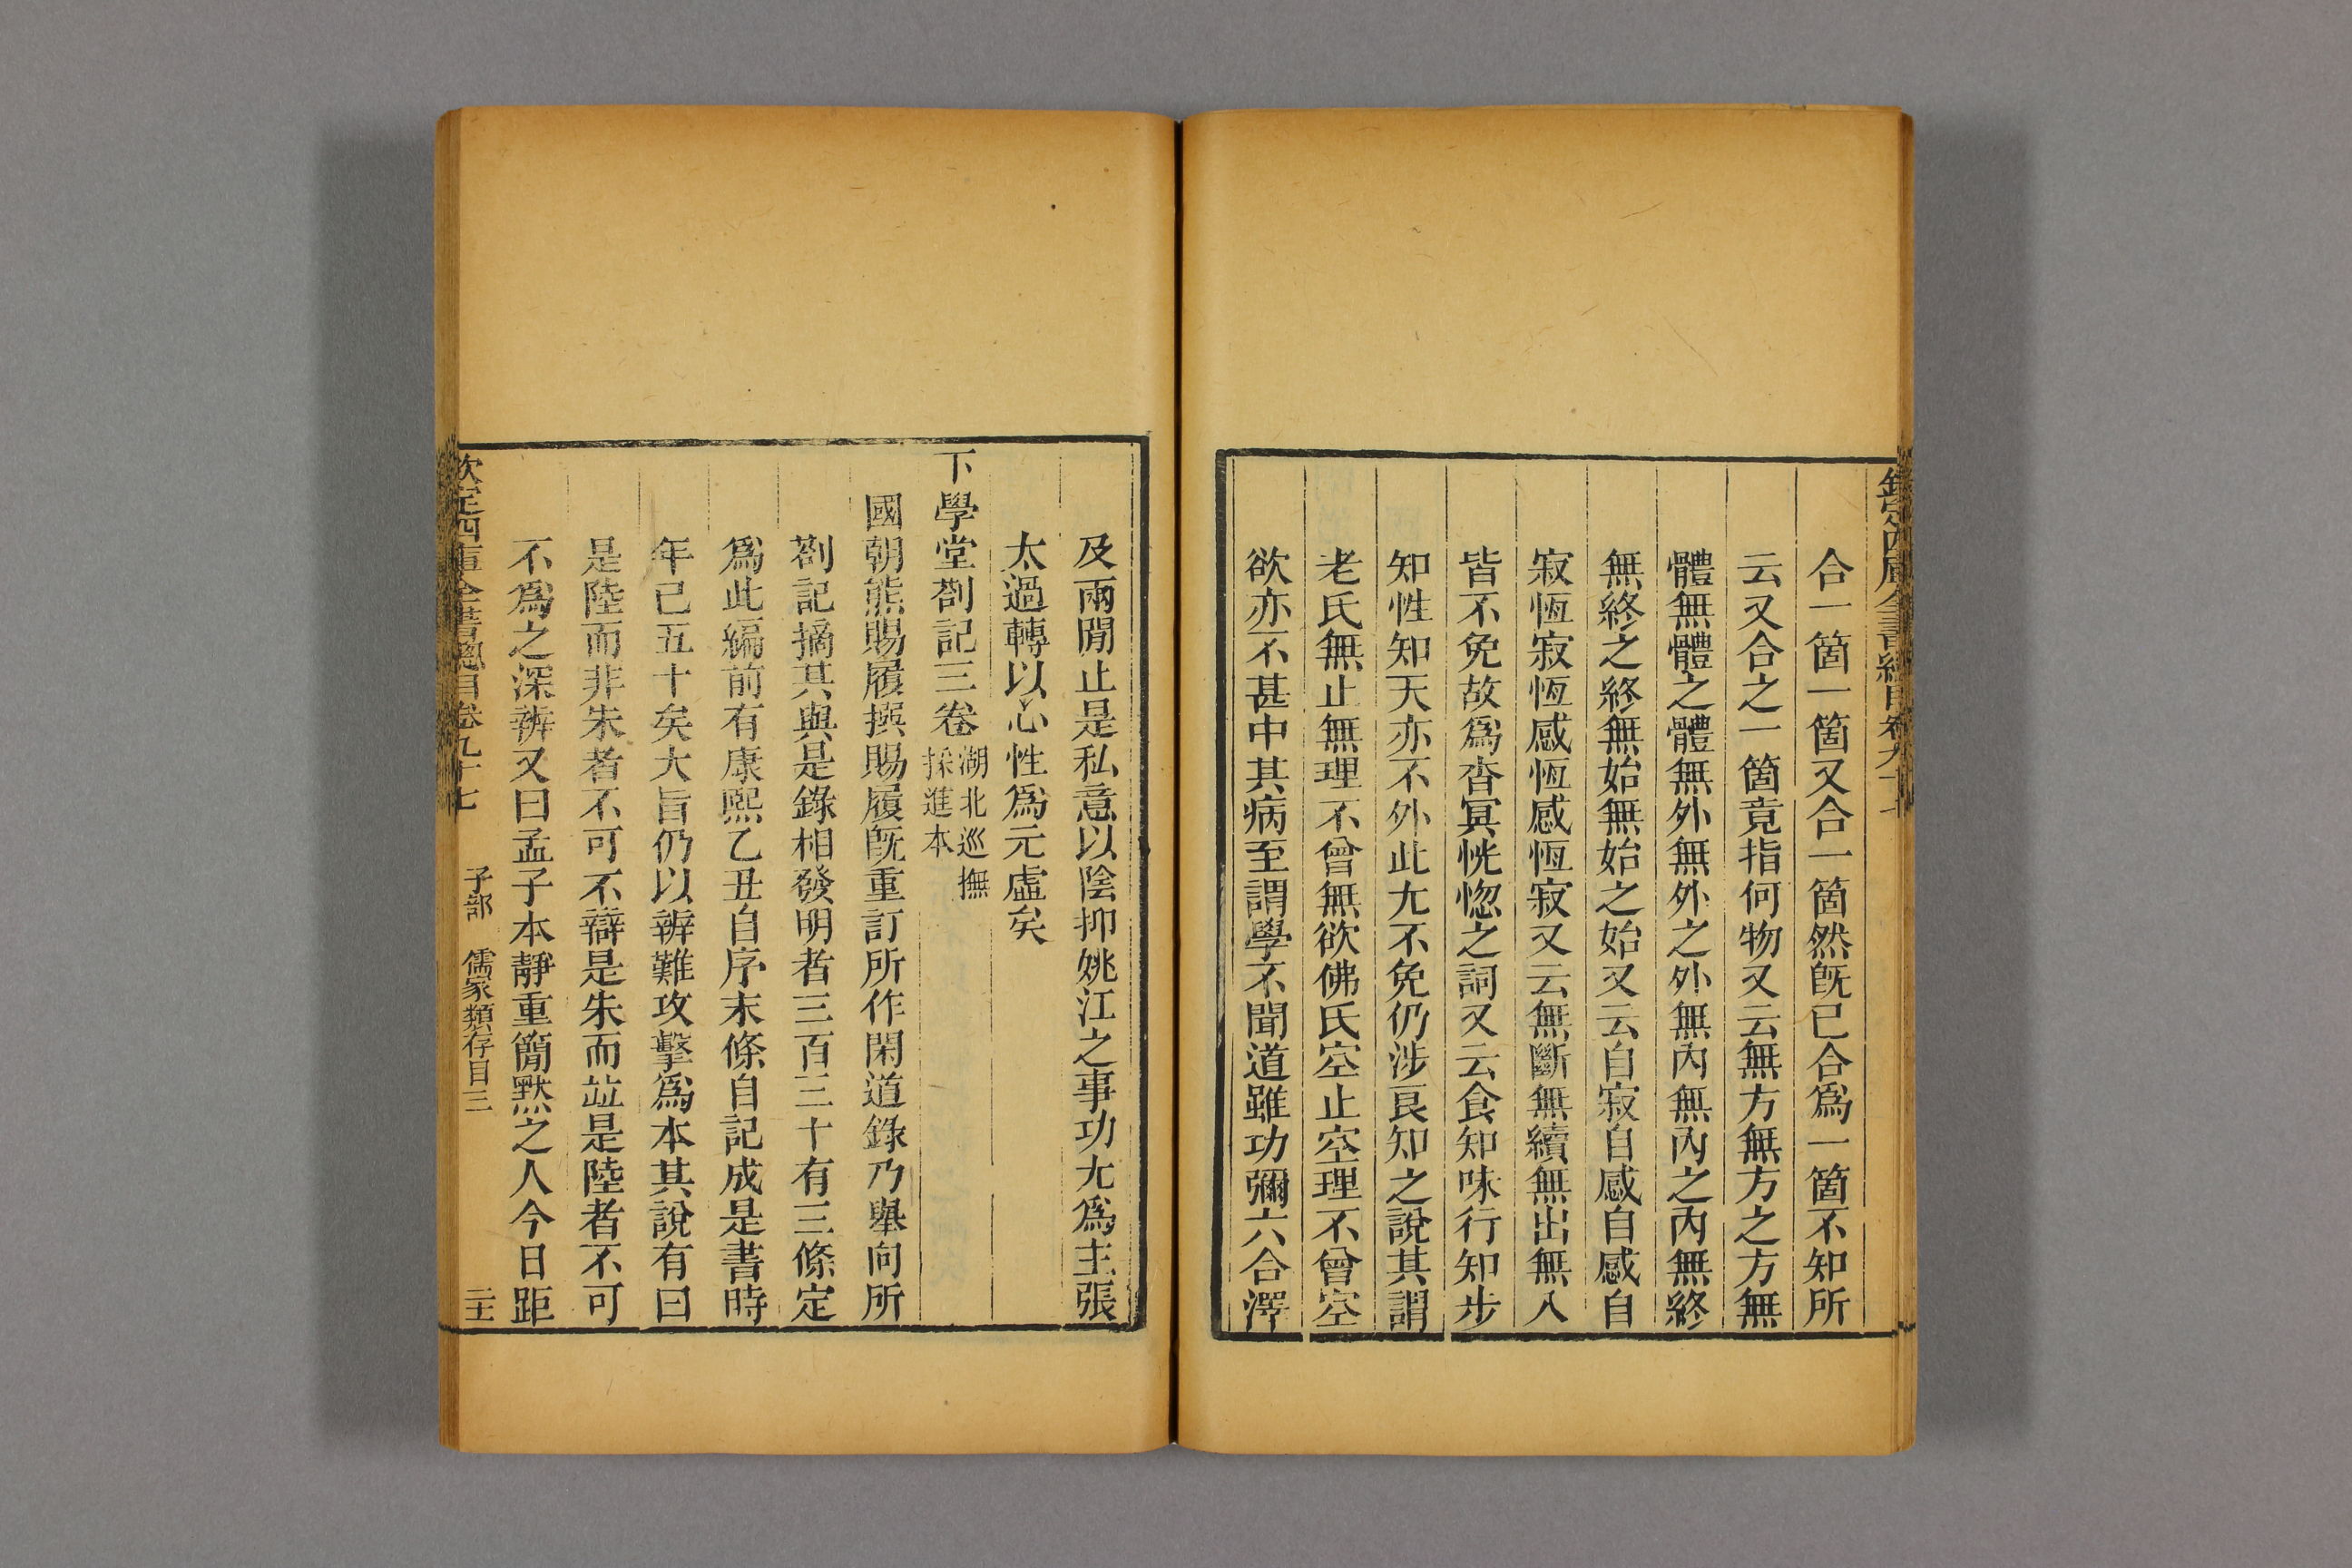 欽定四庫全書總目卷九十七
合一箇一箇又合一箇然旣已合爲一箇不知所
云又合之一箇竟指何物又云無方無方之方無
體無體之體無外無外之外無內無內之內無終
無終之終無始無始之始又云自寂自感自感自
寂恆寂恆感恆感恆寂又云無斷無續無出無入
皆不免故爲杳冥恍惚之詞又云食知味行知步
知性知天亦不外此尢不免仍涉良知之說其謂
老氏無止無理不曾無欲佛氏空止空理不曾空
欲亦不甚中其病至謂學不聞道雖功彌六合澤
及兩閒止是私意以陰抑姚江之事功尢爲主張
太過轉以心性爲元虛矣
下學堂劄記三卷 湖北巡撫
採進本
國朝熊賜履撰賜履旣重訂所作閑道錄乃舉向所
劄記摘其與是錄相發明者三百三十有三條定
爲此編前有康熙乙丑自序末條自記成是書時
年已五十矣大旨仍以辨難攻擊爲本其說有曰
是陸而非朱者不可不辯是朱而竝是陸者不可
不爲之深辨又曰孟子本靜重簡默之人今日距
欽定四庫全書總目卷九十七 子部 儒家類存目三